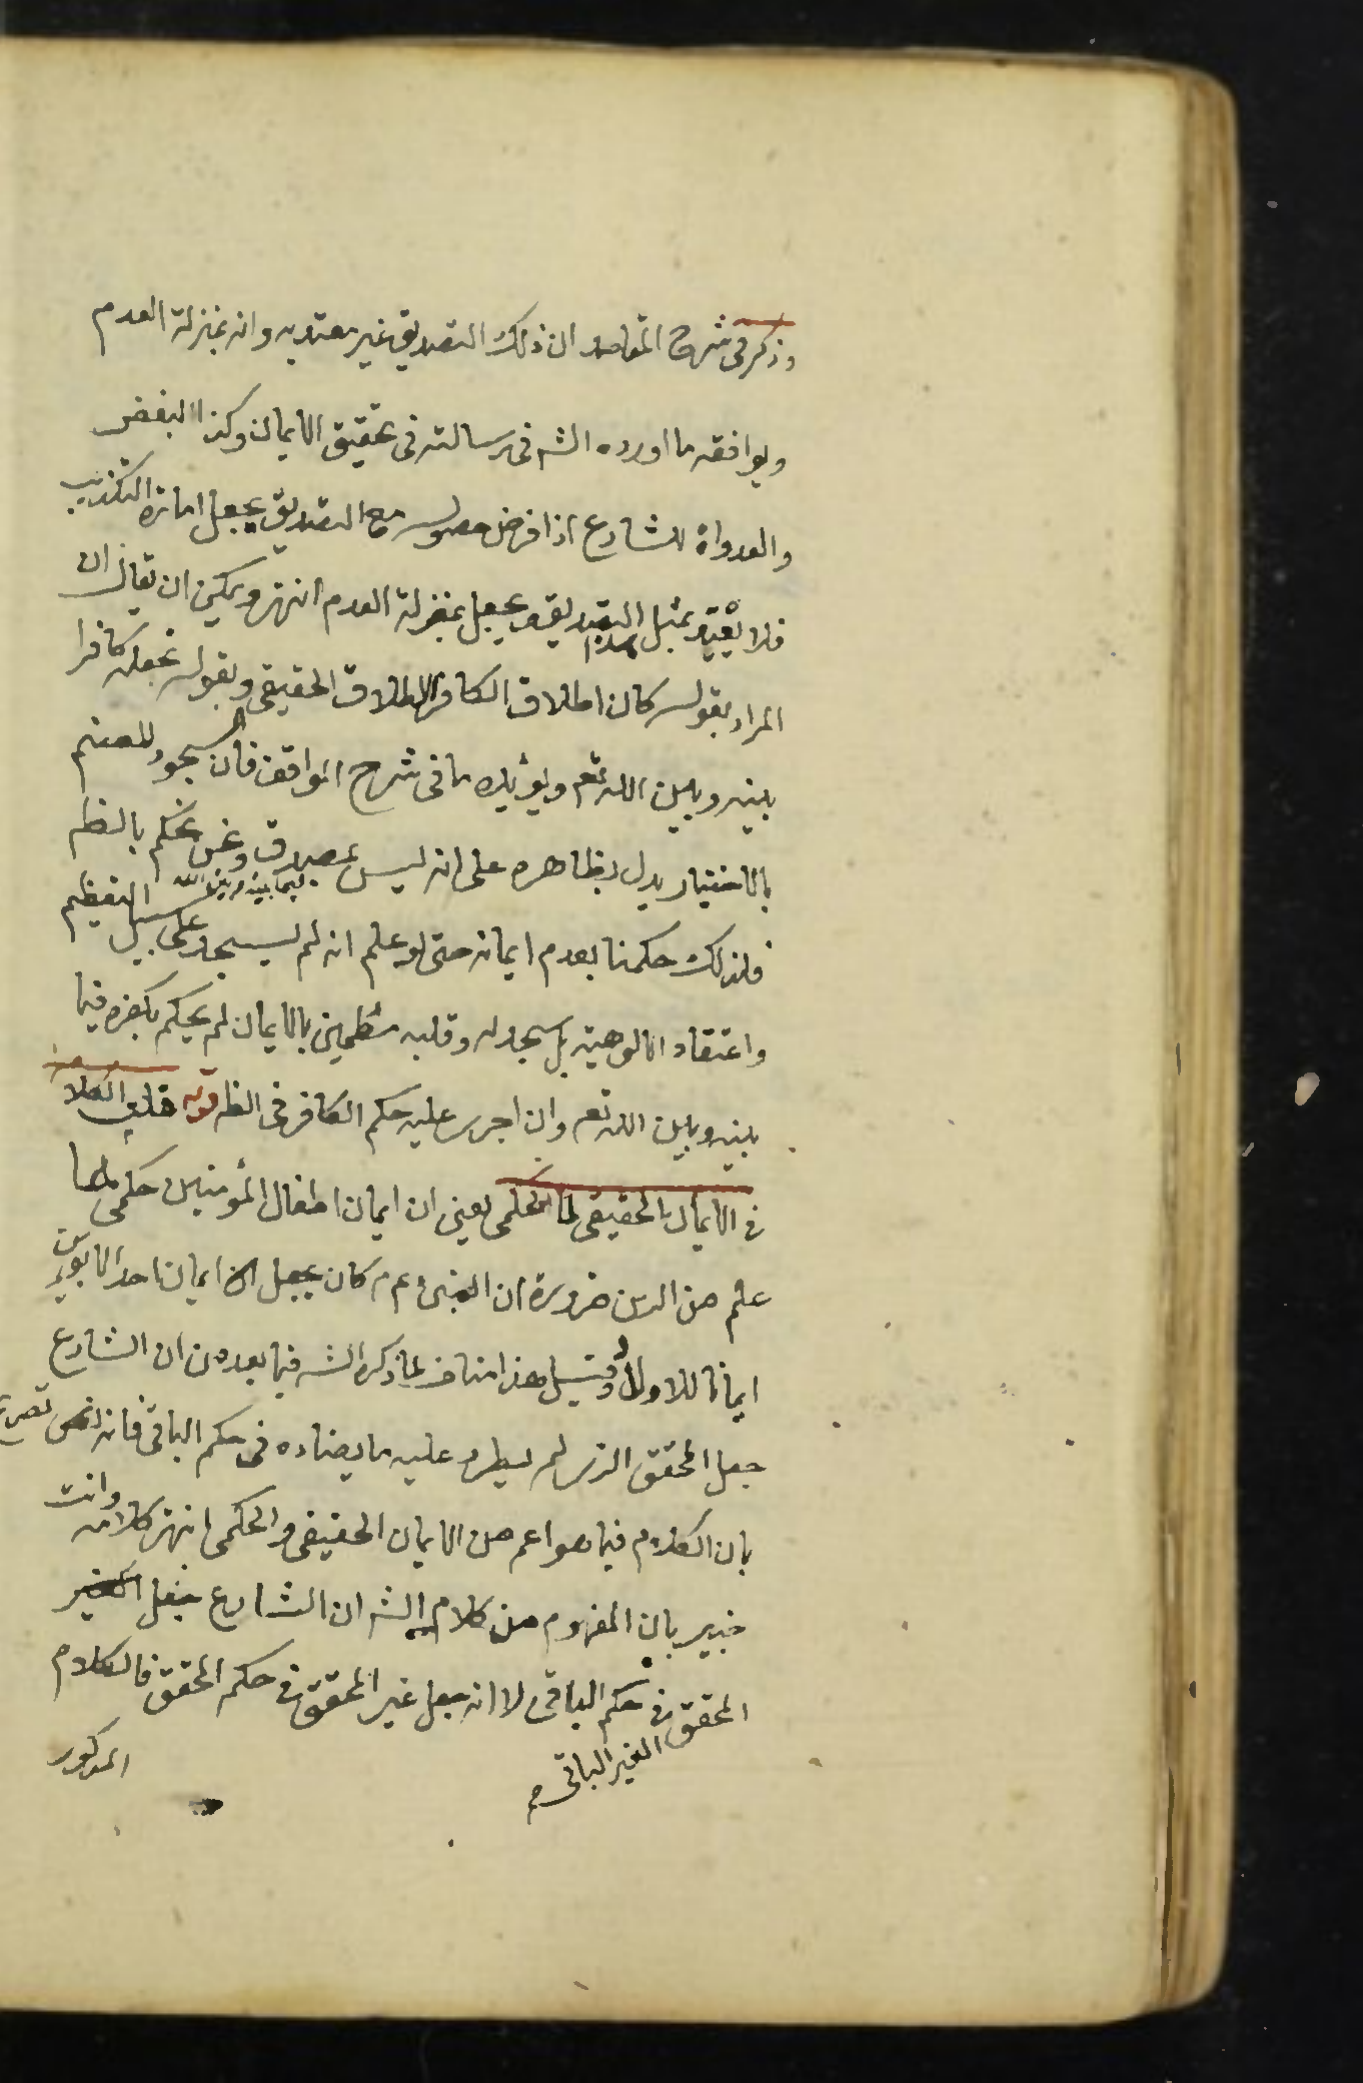 وذكر فى شرح المقاصد ان ذلك التصديق غير معتد به وانه بمنزلة العدم
ويوافقه ما اورده الشه فى رسالته فى تحقيق الايمان وكذا البغض
والعدواة للشارع اذا فرض حصوله مع التصديق يجعل امارة التكذيب
فلا يعتد بمثل هذا التصديق ويجعل بمنزلة العدم انتهى ويمكن ان يقال ان
المراد بقوله كان اطلاق الكافر الاطلاق الحقيقى وبقوله نجعله كافرا
بينه وبين الله تعم ويؤيده ما فى شرح المواقف فان السجود للصنم
بالاختيار يدل بظاهره على انه ليس بمصدق ونحن نحكم بالظم
فيما بينه وبين الله
فلذلك حكمنا بعدم ايمانه حتى لو علم انه لم يسجد على سبيل التعظيم
واعتقاد الالوهية بل سجد له وقلبه مطمئن بالايمان لم يحكم بكفره فيما
بينه وبين الله تعم وان اجرى عليه حكم الكافر فى الظه قوله قلت الكلام
فى الايمان الحقيقى لا الحكمى يعنى ان ايمان اطفال المؤمنين حكمى لما
علم من الدين ضرورة ان النبى ءم كان يجعل ايمان احد الابوين
ايمانا للاولاد وقيل هذا مناف لما ذكره الشه فيما بعده من ان الشارع
جعل المحقق الذى لم يطرء عليه ما يضاده فى حكم الباقى فانه تصريح
بان الكلام فيما هو اعم من الايمان الحقيقى والحكمى انتهى كلامه وانت
خبير بان المفهوم من كلام الشه ان الشارع يجعل
المحقق فى حكم الباقى لا انه جعل غير المحقق فى حكم المحقق فالكلام
الغير الباقى م
المذكور